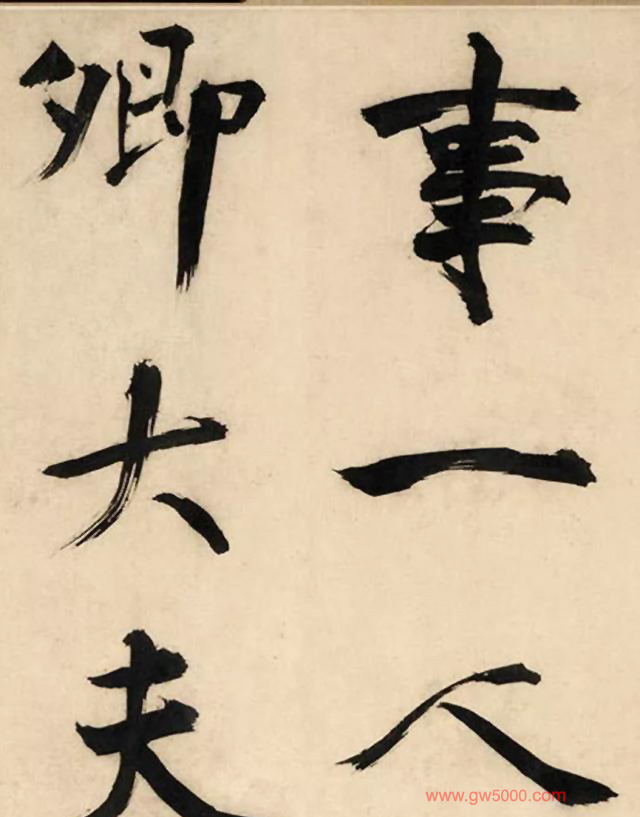 事一人
卿大夫
www.gw5000.com